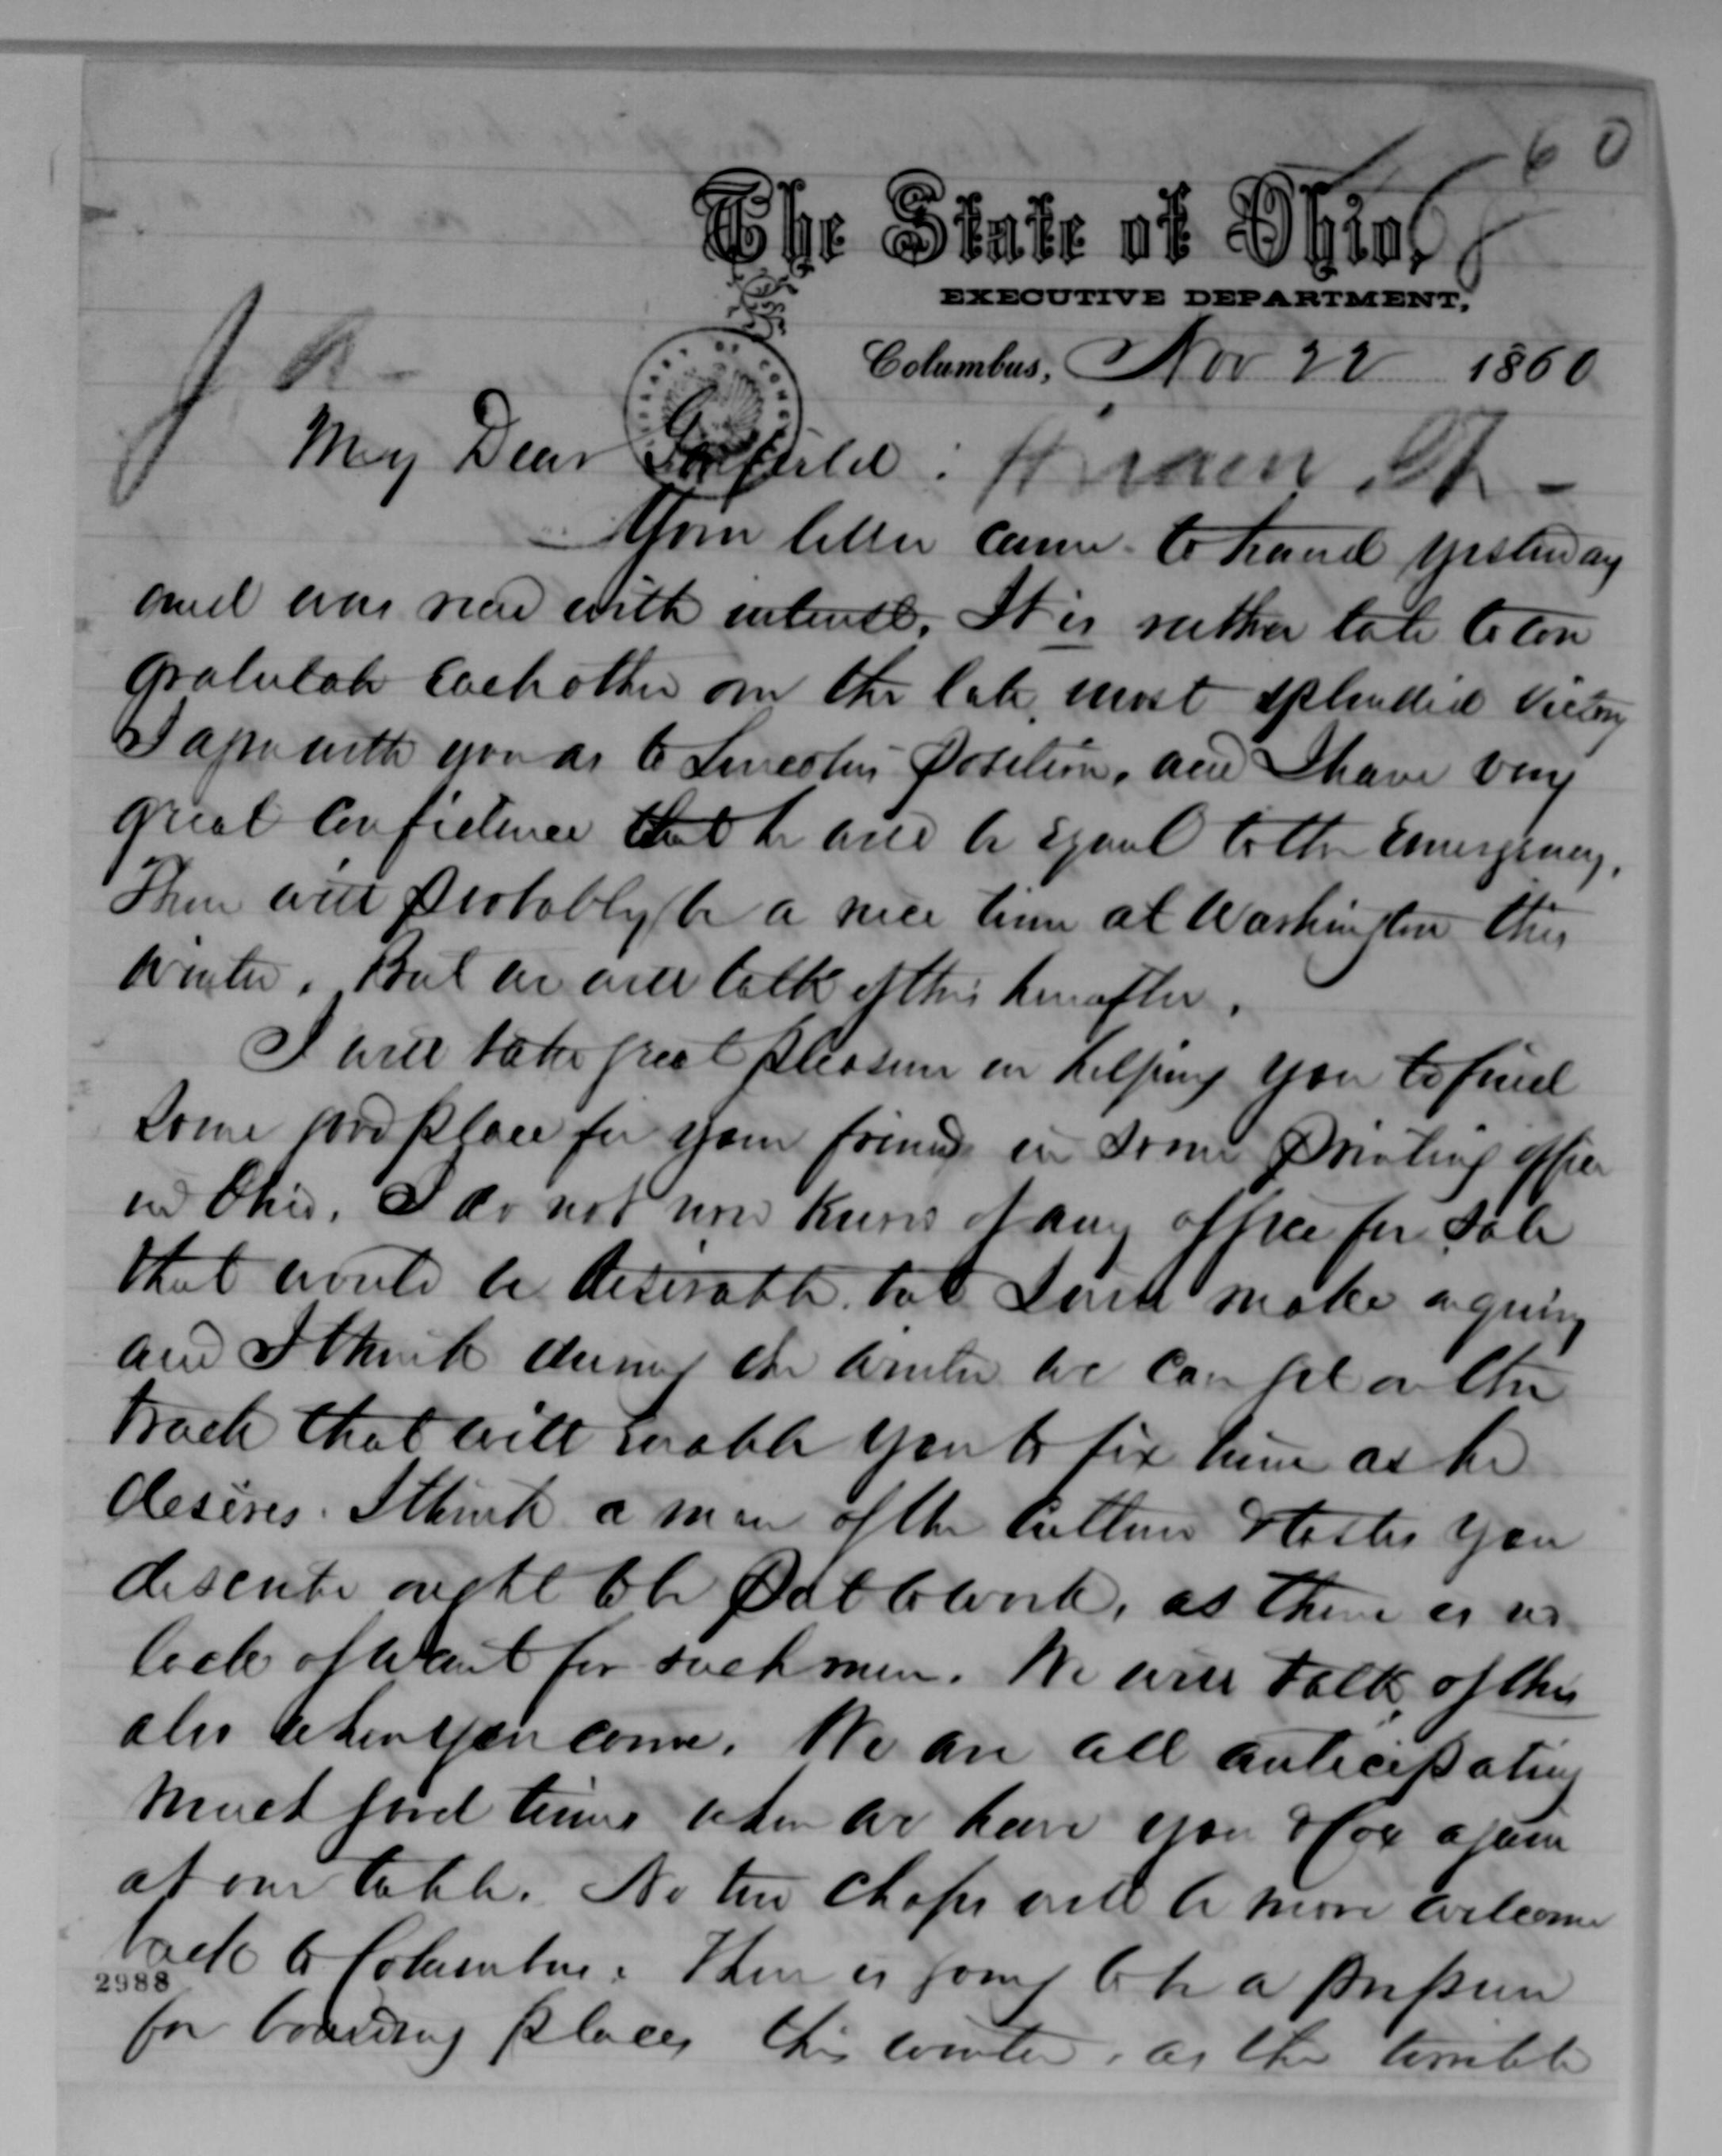 60
The State of Ohio,
EXECUTIVE DEPARTMENT,
Columbus, Nov 22 1860
My Dear Garfield: Hiram, O.
Your letter came to hand yesterday
and was read with interest. It is rather late to con
gratulate each other on the late, most splendid victory
I agree with you as to Lincoln's position, and I have very
great confidence that he will be equal to the emergency.
There will probably be a nice time at Washington this
winter. But we will talk of this hereafter.
I will take great pleasure in helping you to find
some good place for your friend in some printing office
in Ohio. I do not now know of any office for sale
that would be desirable, but I will make inquiry
and I think during the winter we can get on the
track that will enable you to fix him as he
desires. I think a man of the culture & tastes you
describe ought to be put to work, as there is no
lack of want for such men. We will talk of this
also when you come. We are all anticipating
much good times when we have you & Cox again
at our table. No two chaps will be more welcome
back to Columbus. There is going to be a pressure
for boarding places this winter, as the terrible
2988